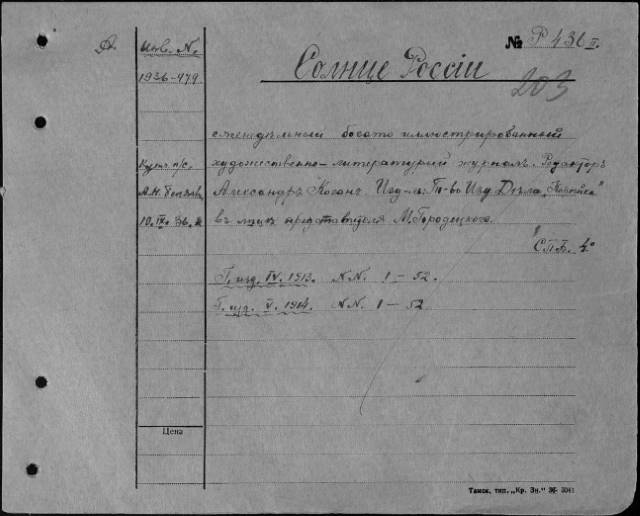 Инв. N.
1936-479
№ Р 436 II.
Солнце Россіи
203
еженедѣльный богато иллюстрированный
художественно-литературный журналъ. Редакторъ
Купл. п/с.
А.Н.
Александръ Коганъ. Изд-ль: Т-во Изд. Дѣла „Копейка"
10. IX. 36. г.
въ лицѣ представителя М. Городецкого.
С.П.Б. 4°
Г. изд. IV. 1913. N.N. 1 – 52.
Г. изд. V. 1914. N.N. 1 – 52
Цена
Тамск. тип. „Кр. Зн."